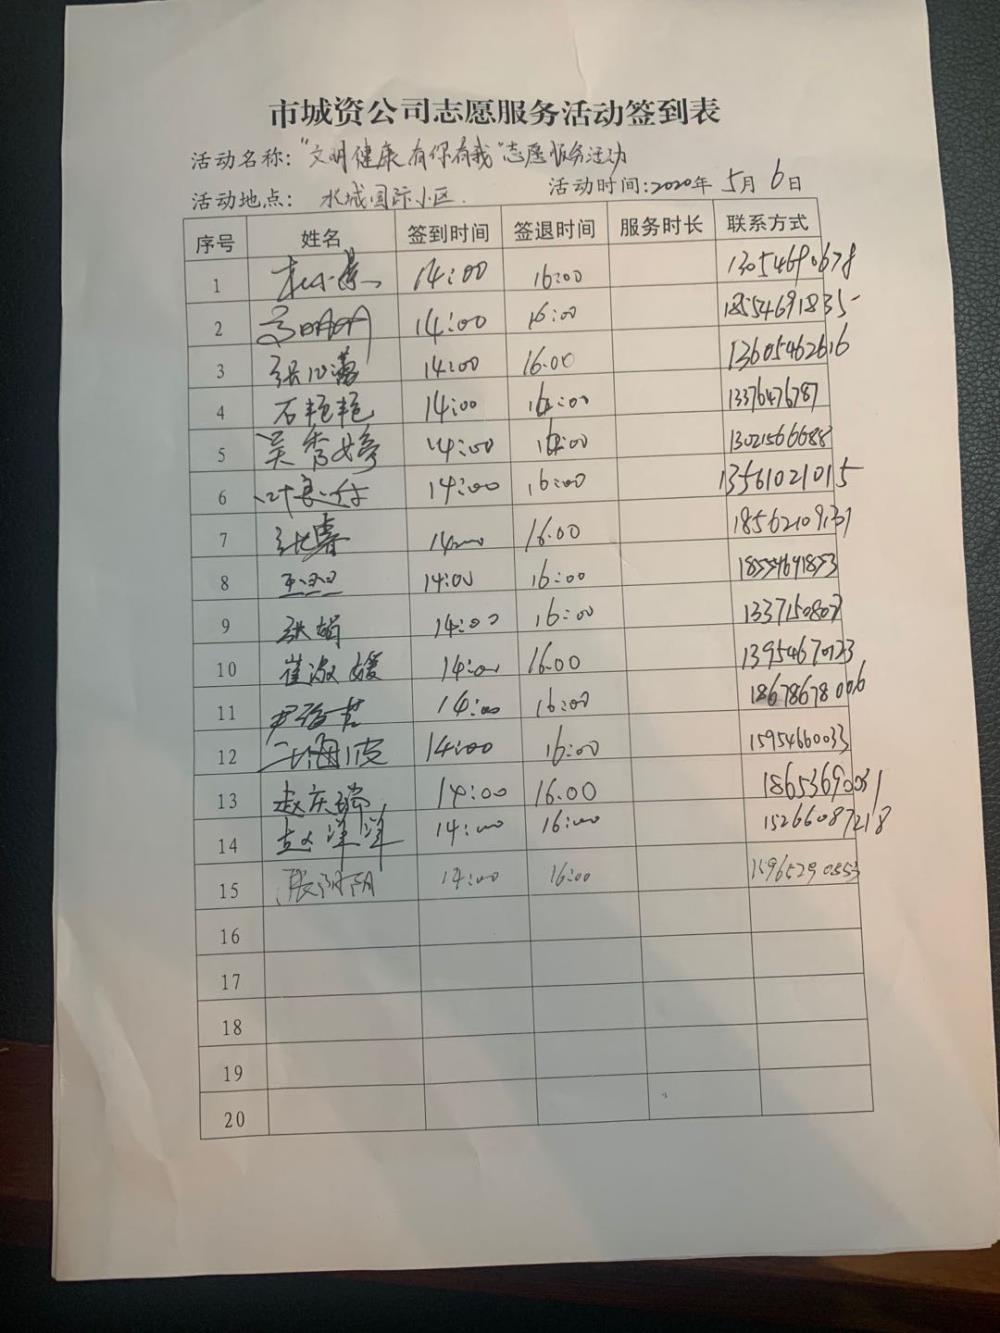 市城资公司志愿服务活动签到表
活动名称:"文明健康 有你有我"志愿服务活动
活动地点: 水城国际小区.
活动时间:2020年 5月 6日
序号 姓名 签到时间 签退时间 服务时长 联系方式
1 14:00 16:00 13054690678
2 14:00 16:00 18554691835
3 14:00 16.00 13605462616
4 石艳艳 14:00 16:00 13376476787
5 吴秀婷 14:00 16:00 13021566688
6 14:00 16:00 13561021015
7 14:00 16.00
8 14:00 16:00 18554691853
9 张娟 14:00 16:00
10 崔淑媛 14:00 16.00 13954670123
11 14:00 16:00 18678678006
12 王海波 14:00 16:00 15954660033
13 赵庆瑞 14:00 16.00 18653690031
14 赵洋洋 14:00 16:00 15266087218
15 张阴阴 14:00 16:00
16
17
18
19
20